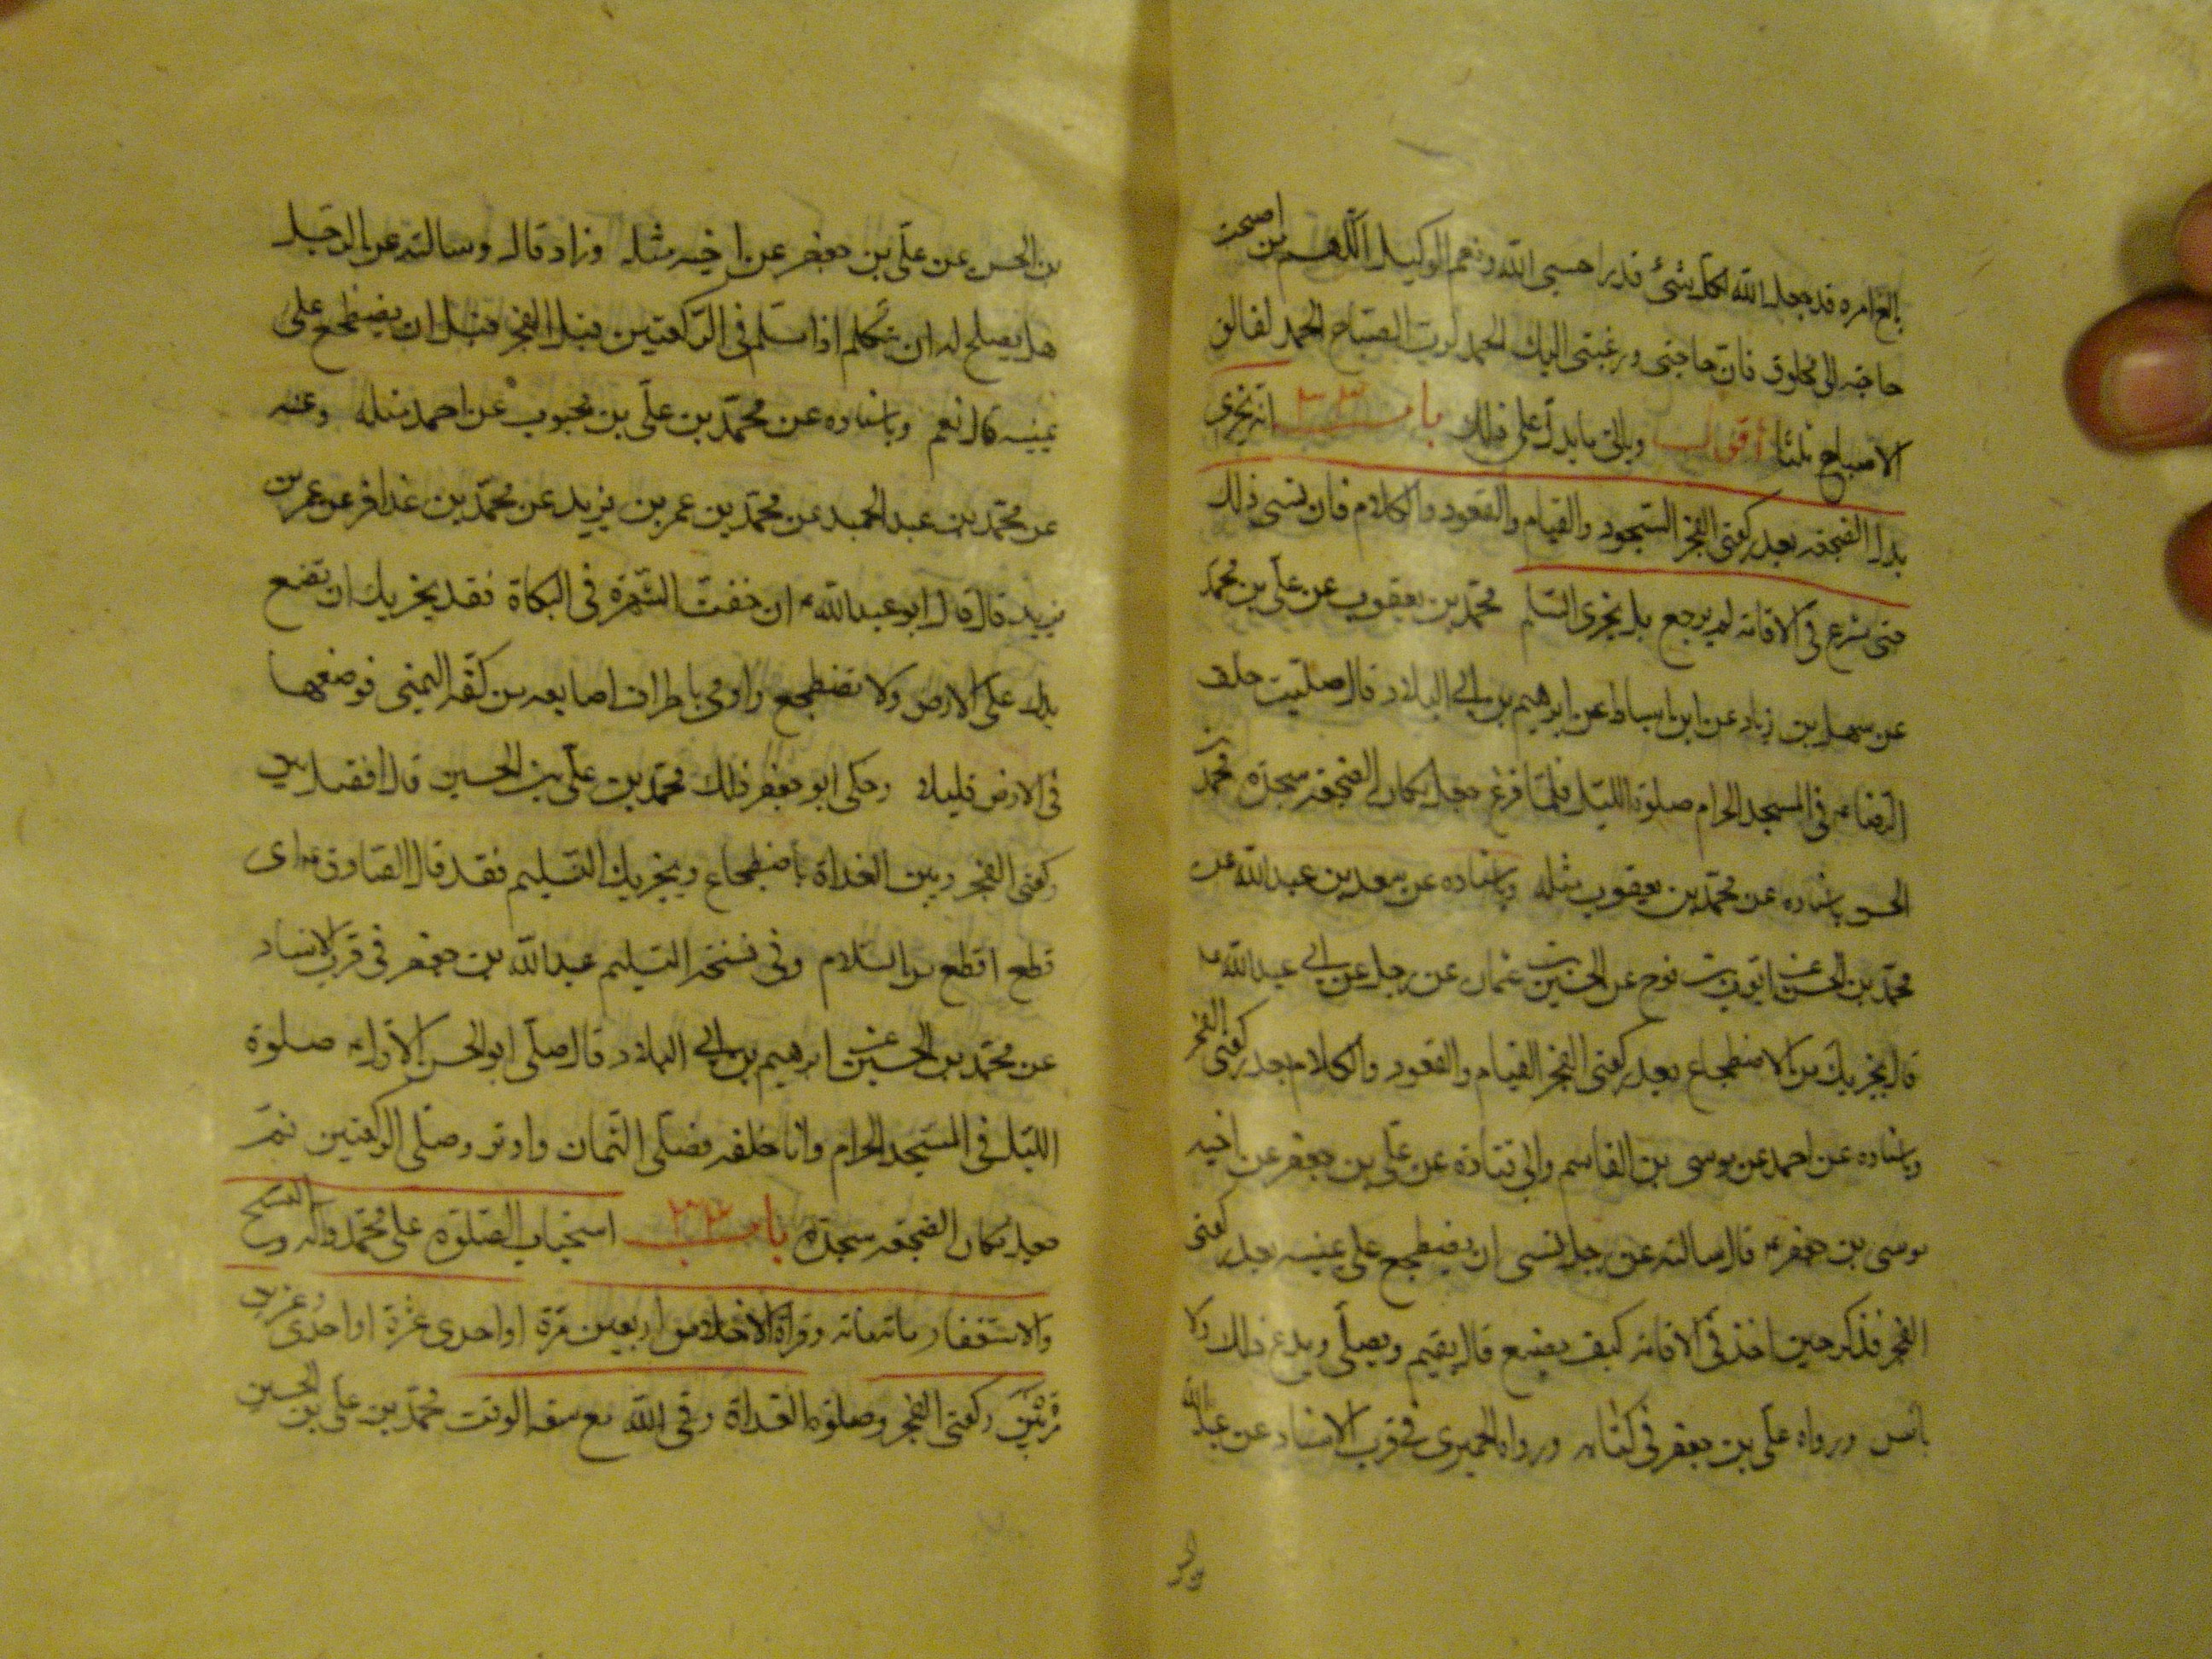 بالغ امره قد جعل الله لكل شئ قدرا حسبي الله ونعم الوكيل اللهم من اصبحت
حاجته الى مخلوق فان حاجتى ورغبتى اليك الحمد لرب الصباح الحمد لفالق
الاصباح ثلثا اقول وياتى ما يدل على ذلك باب ٣٣ انه يجزى
بدل الضجعه بعد ركعتى الفجر السجود والقيام والقعود والكلام فان نسى ذلك
حتى شرع فى الاقامه لم يرجع بل يجزى السلم محمد بن يعقوب عن على بن محمد
عن سهل بن زياد عن ابن اسباط عن ابرهيم بن ابى البلاد قال صليت خلف
الرضا ع فى المسجد الحرام صلوة الليل فلما فرغ جعل مكان الضجعه سجدة محمد بن
الحسن باسناده عن محمد بن يعقوب مثله وباسناده عن سعد بن عبدالله عن
محمد بن الحسين عن ايوب بن نوح عن الحسين بن عثمان عن رجل عن ابى عبدالله ع
قال يجزيك من الاضطجاع بعد ركعتى الفجر القيام والقعود والكلام بعد ركعتى الفجر
وباسناده عن احمد عن موسى بن القاسم وابى قتادة عن على بن جعفر عن اخيه
موسى بن جعفر ع قال سالته عن رجل نسى ان يضطجع على يمينه بعد ركعتى
الفجر فذكر حين اخذ فى الاقامة كيف يصنع قال يقيم ويصلى ويدع ذلك ولا
باس ورواه على بن جعفر فى كتابه ورواه الحميرى فى قرب الاسناد عن عبدالله
بن الحسن عن على بن جعفر عن اخيه مثله وزاد قال وسالته عن الرجل
هل يصلح له ان يتكلم اذا سلم فى الركعتين قبل الفجر قبل ان يضطجع على
يمينه قال نعم وباسناده عن محمد بن على بن محبوب عن احمد مثله وعنه
عن محمد بن عبد الحميد عن محمد بن عمر بن يزيد عن محمد بن عذافر عن عمر بن
يزيد قال قال ابو عبدالله ع ان خفت الشهرة فى التكاة فقد يجزيك ان تضع
يدك على الارض ولا تضطجع واومى باطراف اصابعه من كفه اليمنى فوضعها
فى الارض قليلا وحكى ابو جعفر ذلك محمد بن على بن الحسين قال افصل بين
ركعتى الفجر وبين الغداة باضطجاع ويجزيك التسليم فقد قال الصادق ع اى
قطع اقطع من السلام وفى نسخة التسليم عبدالله بن جعفر فى قرب الاسناد
عن محمد بن الحسين عن ابرهيم بن ابى البلاد قال صلى ابو الحسن الاول ع صلوة
الليل فى المسجد الحرام وانا خلفه فصلى الثمان واوتر وصلى الركعتين ثم
جعل مكان الضجعه سجدة باب ٣٤ استحباب الصلوة على محمد واله والتسبيح
والاستغفار مائة مائة وقراة الاخلاص اربعين مرة او احدى عشرة او احدى وعشرين
مرة بين ركعتى الفجر وصلوة الغداة وتقى الله مع سعة الوقت محمد بن على بن الحسين